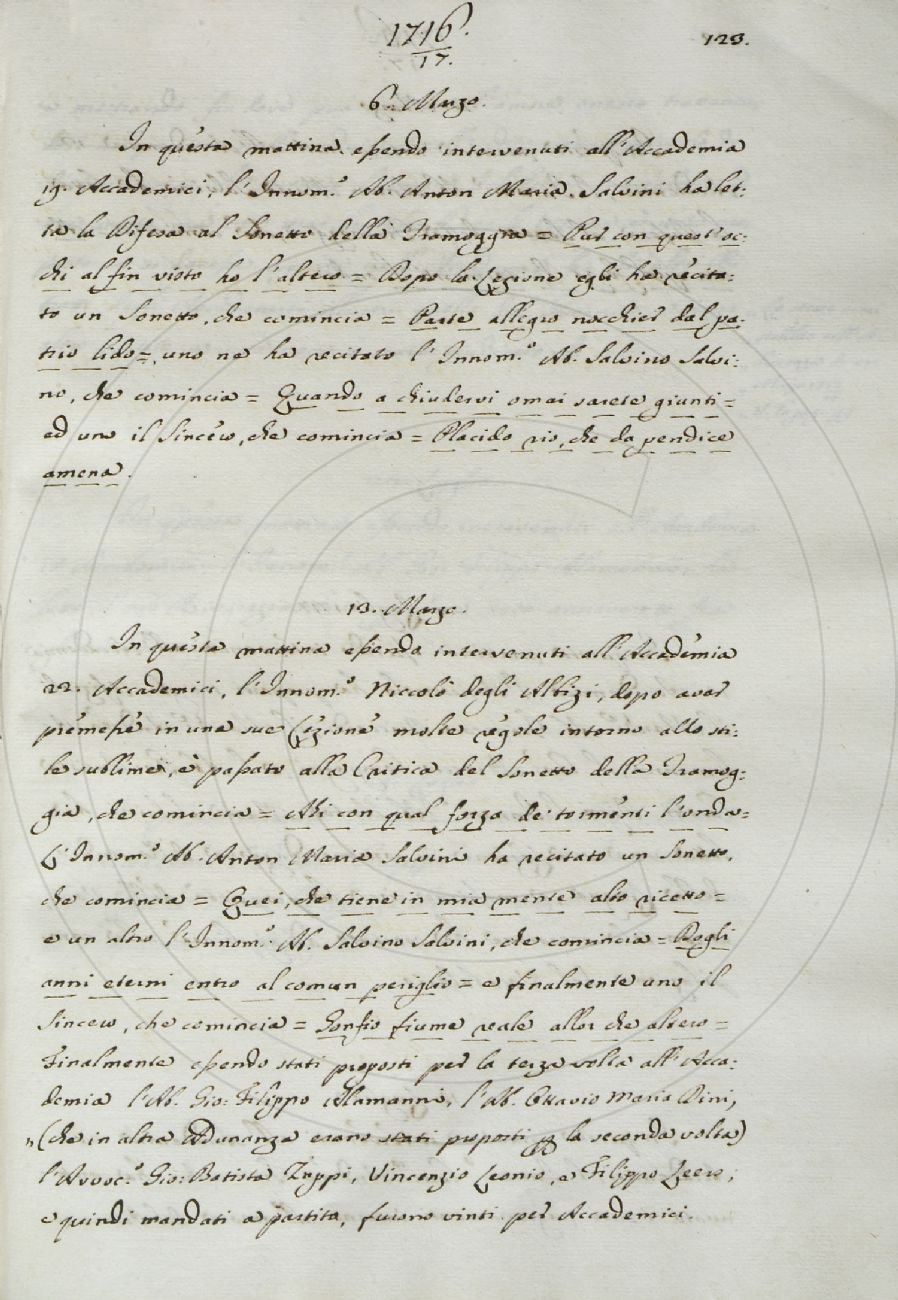 1716.
17.
123.
6. Marzo.
In questa mattina essendo intervenuti all'Accademia
19. Accademici, l'Innom.º Ab. Anton Maria Salvini ha let-
ta la Difesa al Sonetto della Tramoggia = Pur con quest'oc-
chi al fin visto ho l'altero = Dopo la Lezione egli ha recita-
to un Sonetto, che comincia = Parte allegro nocchier dal pa-
trio lido =, uno ne ha recitato l'Innom.º Ab. Salvino Salvi-
no, che comincia = Quando a chiudervi omai sarete giunti =
ed uno il Sincero, che comincia = Placido rio, che da pendice
amena.
13. Marzo.
In questa mattina essendo intervenuti all'Accademia
22. Accademici, l'Innom.º Niccolò degli Albizi, dopo aver
premesse in una sua Lezione molte regole intorno allo sti-
le sublime, è passato alla Critica del Sonetto della Tramog-
gia, che comincia = Ahi con qual forza de' tormenti l'onda =
L'Innom.º Ab. Anton Maria Salvini ha recitato un Sonetto,
che comincia = Quei, che tiene in mia mente alto ricetto =
e un altro l'Innom.º Ab. Salvino Salvini, che comincia = Dogli
anni eterni entro al comun periglio = e finalmente uno il
Sincero, che comincia = Gonfio fiume reale allor che altero =
Finalmente essendo stati proposti per la terza volta all'Acca-
demia l'Ab. Gio: Filippo Alamanni, l'Ab. Ottavio Maria Dini,
" (che in altra Adunanza erano stati proposti per la seconda volta)
l'Avvoc.º Gio: Batista Zuppi, Vincenzio Leonio, e Filippo Leers;
e quindi mandati a partito, furono vinti per Accademici.